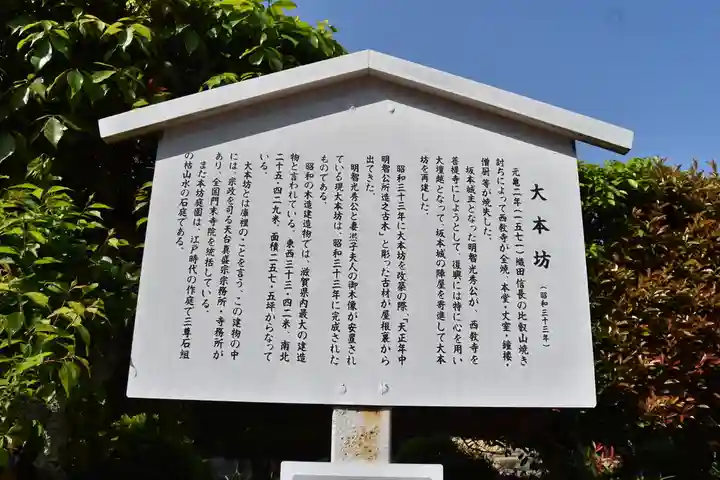 大本坊
(昭和三十三年)
元亀二年(一五七一)織田信長の比叡山焼き
討ちによって西教寺が全焼、本堂・丈室・鐘楼・
僧厨等が焼失した。
坂本城主となった明智光秀公が、西教寺を
菩提寺にしようとして、復興には特に心を用い
大壇越となって、坂本城の陣屋を寄進して大本
坊を再建した。
昭和三十三年に大本坊を改築の際、「天正年中
明智公所造之古木」と彫った古材が屋根裏から
出てきた。
明智光秀公と妻煕子夫人の御木像が安置され
ている現大本坊は、昭和三十三年に完成された
ものである。
昭和の木造建造物では、滋賀県内最大の建造
物と言われている。東西三十三・四二米、南北
二十五・四二九米、面積二五七・五坪からなって
いる。
大本坊とは庫裡のことを言う。この建物の中
には、宗政を司る天台真盛宗宗務所・寺務所が
あり、全国門末寺院を統括している。
また本坊庭園は、江戸時代の作庭で三尊石組
の枯山水の石庭である。